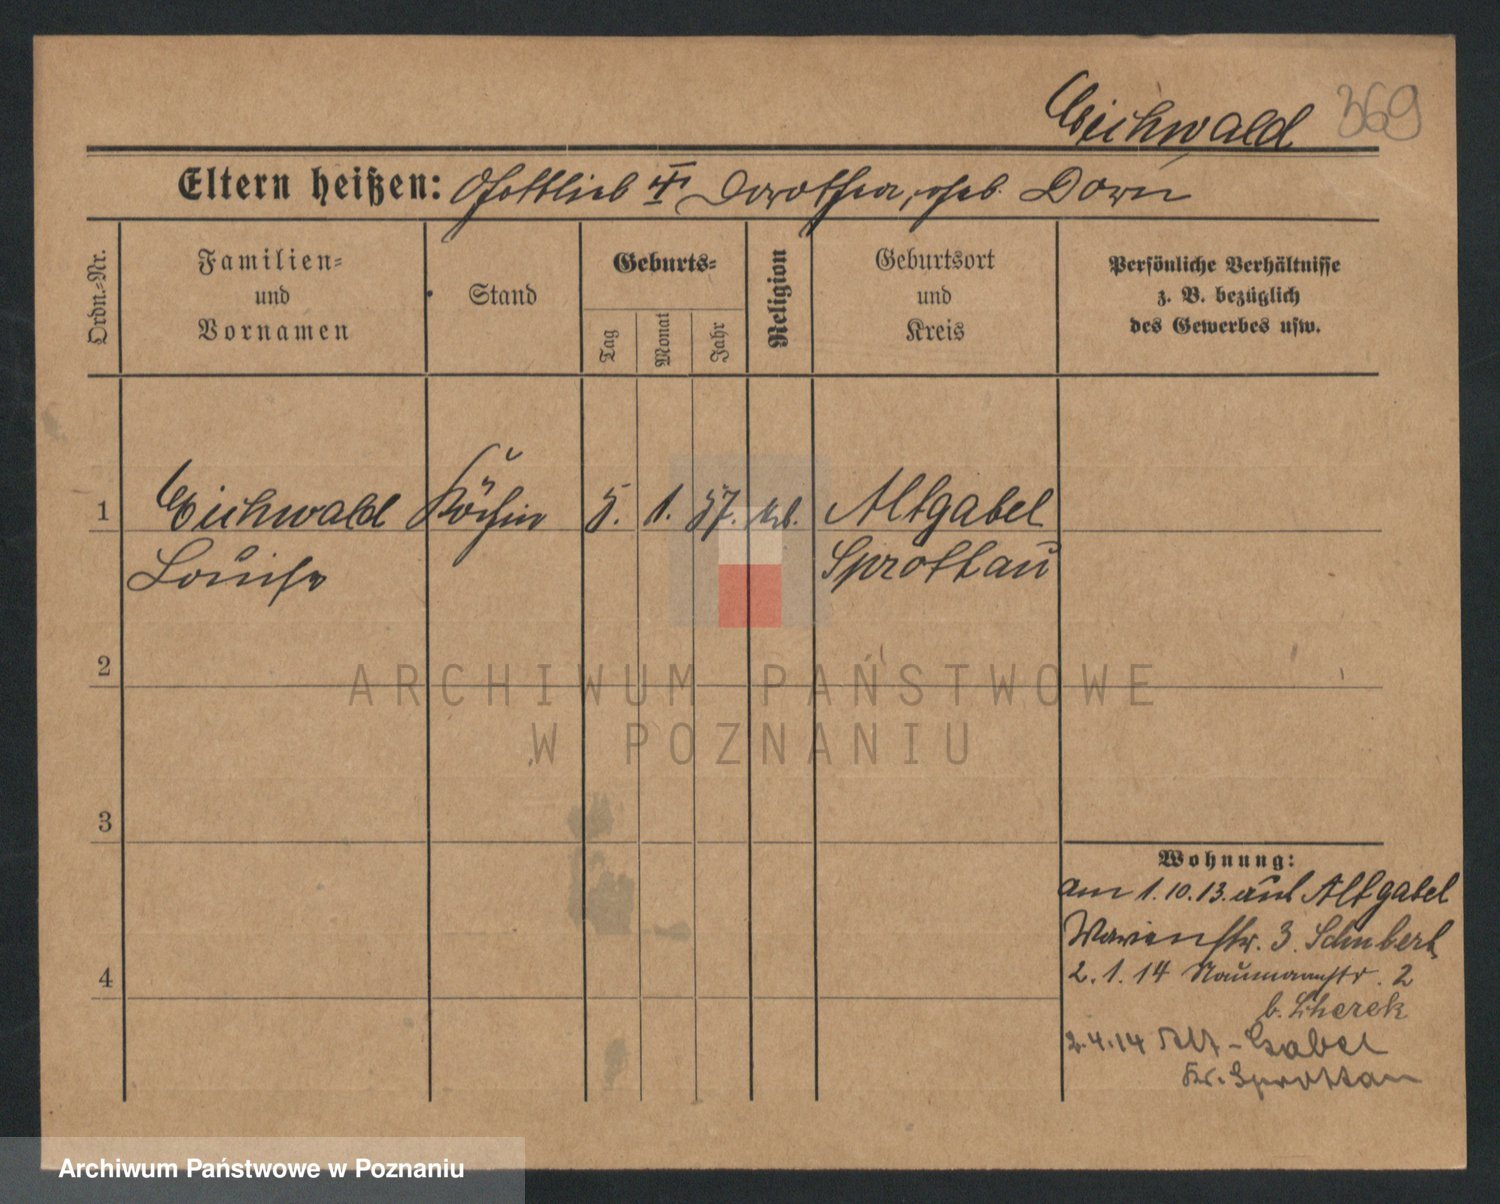 Eichwald 369
Eltern heißen: Gottlieb Dorothea, geb. Dorn
Ordn.-Nr.
Familien-
und
Vornamen
Stand
Geburts-
Tag
Monat
Jahr
Religion
Geburtsort
und
Kreis
Persönliche Verhältnisse
z. B. bezüglich
des Gewerbes usw.
1 Eichwald Köchin 5. 1. 57. Altgabel
Louise Sprottau
2
ARCHIWUM PAŃSTWOWE
W POZNANIU
3
Wohnung:
am 1.10.13. aus Altgabel
3. Schubert
2.1.14 Naumannstr. 2
4
b.
2.4.14 Alt-Gabel
Kr. Sprottau
Archiwum Państwowe w Poznaniu